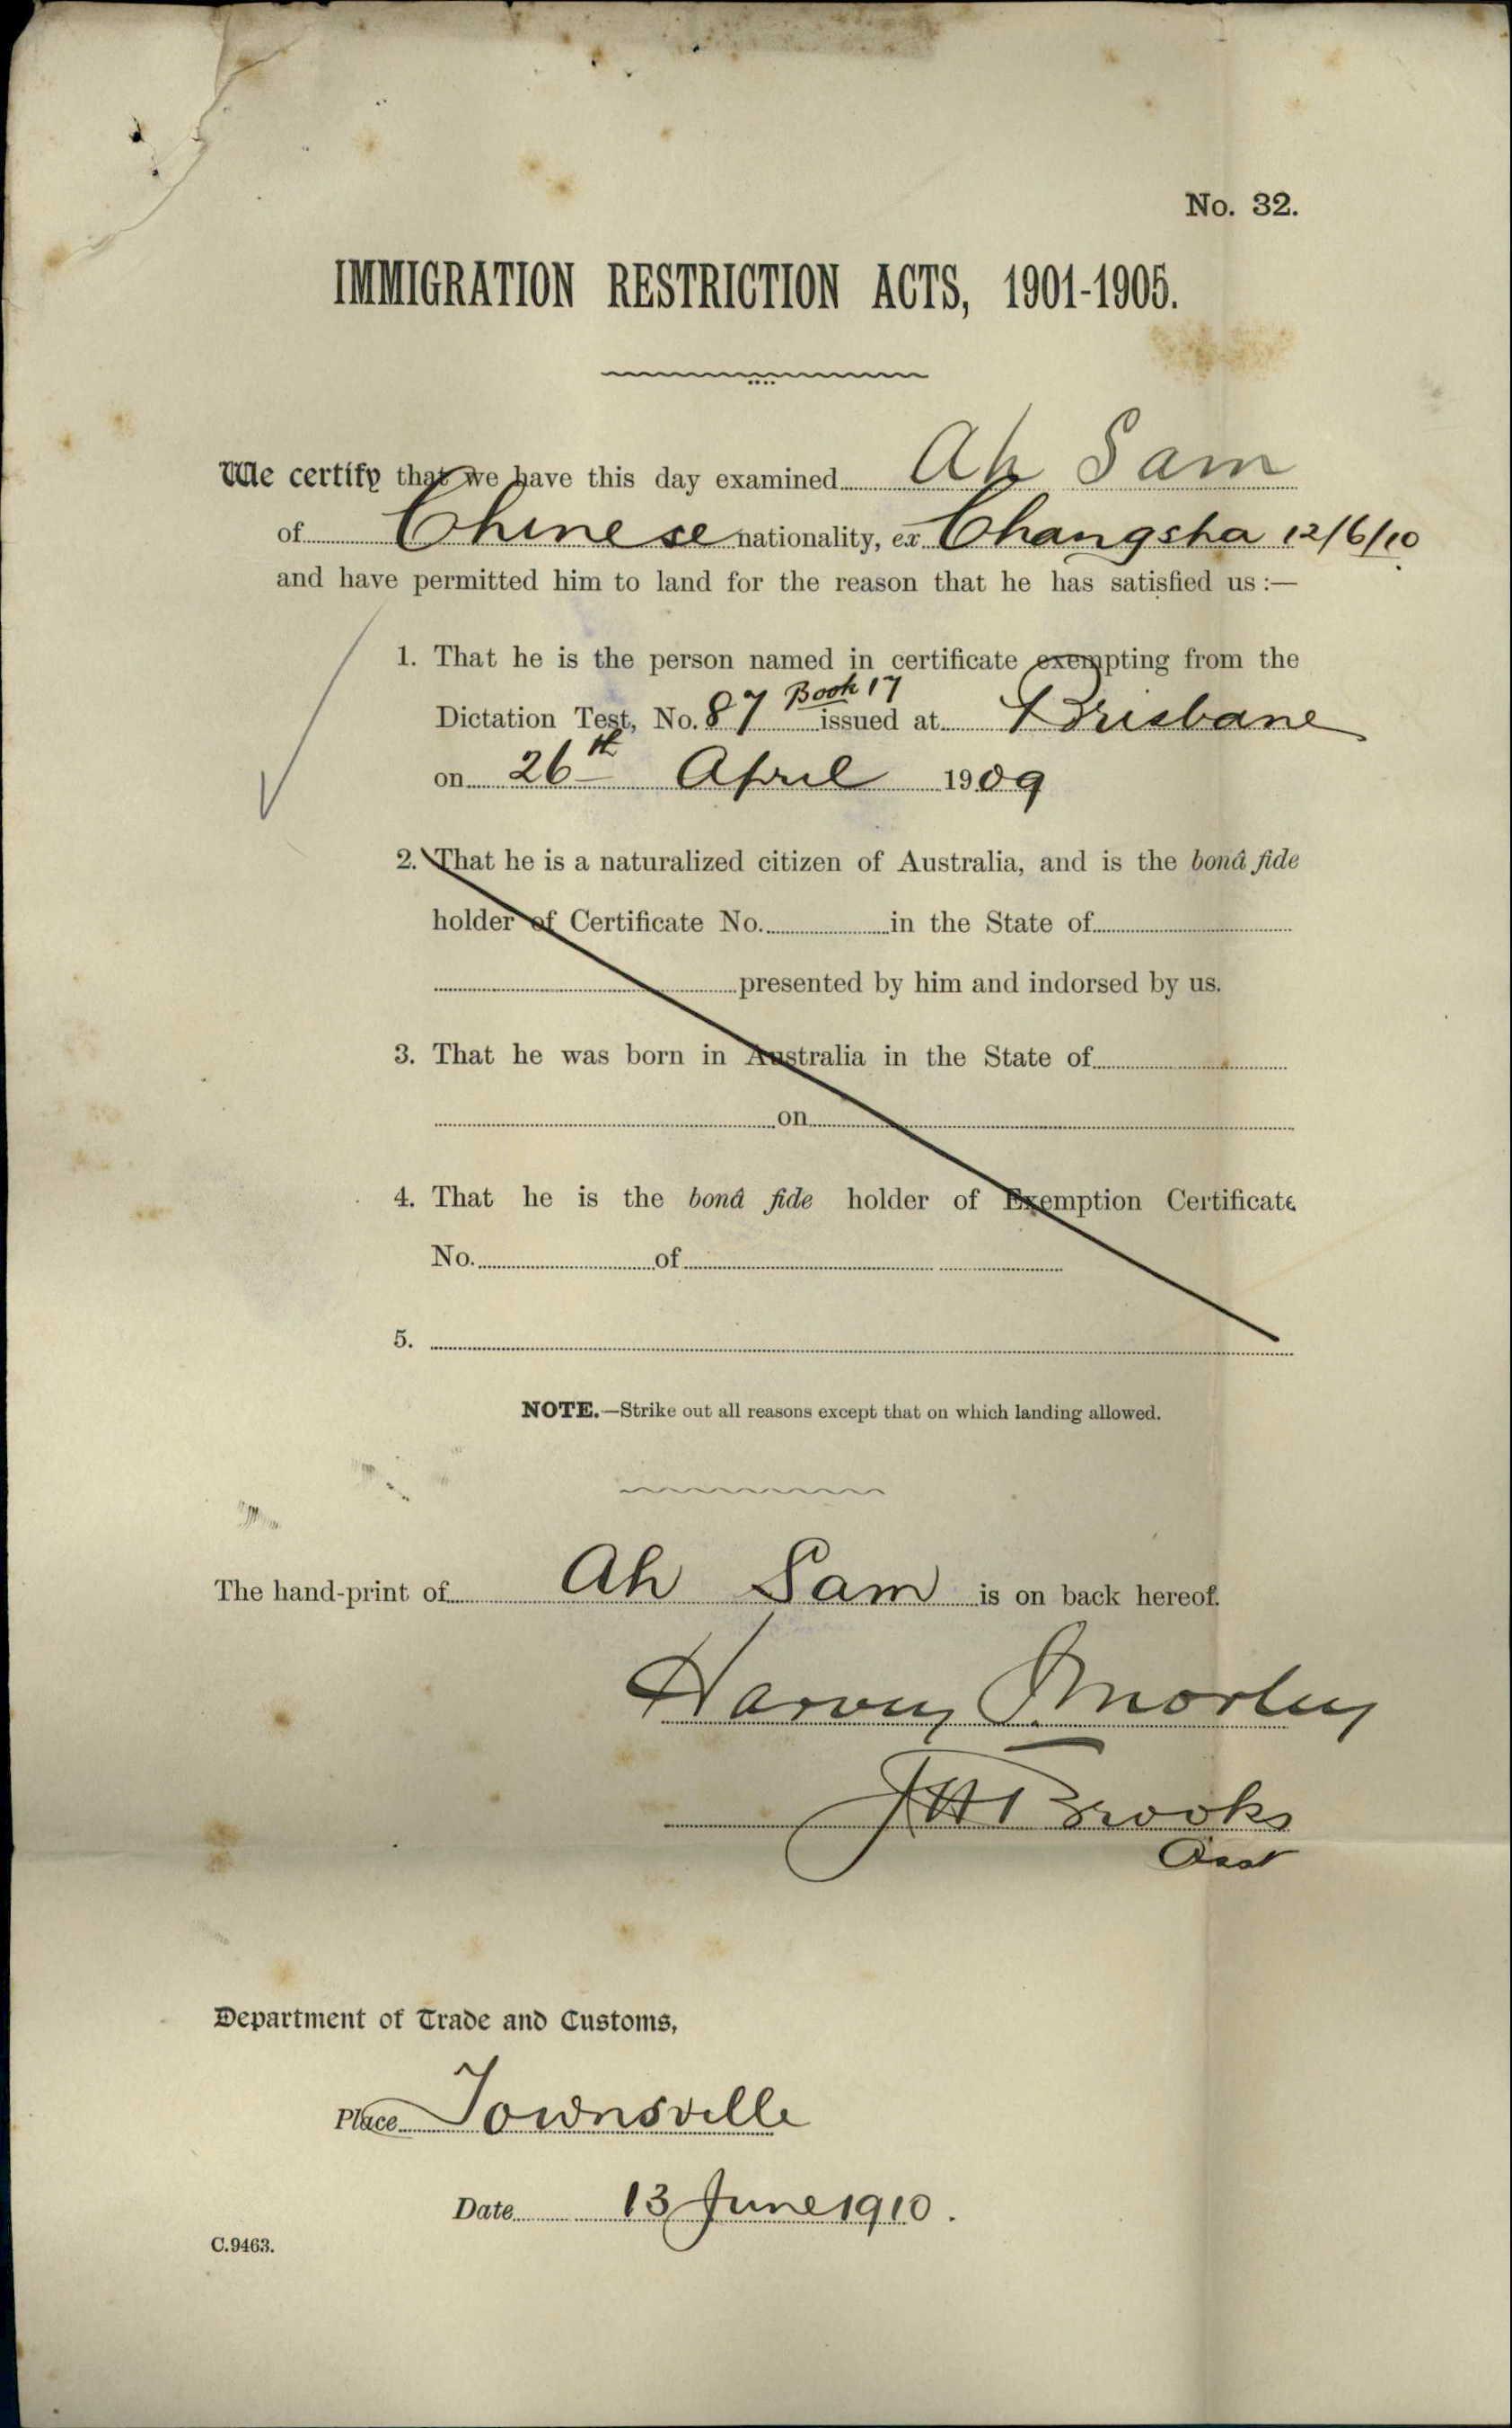 No. 32.
IMMIGRATION RESTRICTION ACTS, 1901-1905.
We certify that we have this day examined Ah Sam
of Chinese nationality, ex Changsha 12/6/10
and have permitted him to land for the reason that he has satisfied us :—
1. That he is the person named in certificate exempting from the
Dictation Test, No. 87 Book 17 issued at Brisbane
on 26th April 1909
2. That he is a naturalized citizen of Australia, and is the bonâ fide
holder of Certificate No. in the State of
presented by him and indorsed by us.
3. That he was born in Australia in the State of
on
4. That he is the bonâ fide holder of Exemption Certificate
No. of
5.
NOTE.—Strike out all reasons except that on which landing allowed.
The hand-print of Ah Sam is on back hereof.
Harvey Morley
JH Brooks
Asst
Department of Trade and Customs,
Place Townsville
Date 13 June 1910.
C.9463.